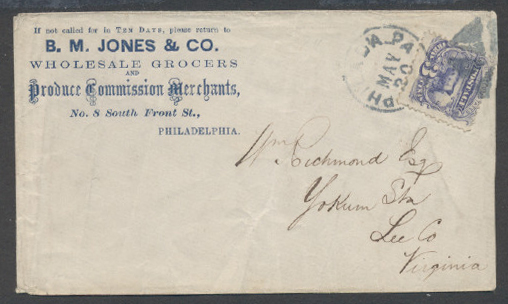 If not called for in TEN DAYS, please return to
B. M. JONES & CO.
WHOLESALE GROCERS
AND
Produce Commission Merchants,
No. 8 South Front St.,
PHILADELPHIA.
PA.
MAY
20
Wm Richmond Esq
Yokum Sta
Lee Co
Virginia